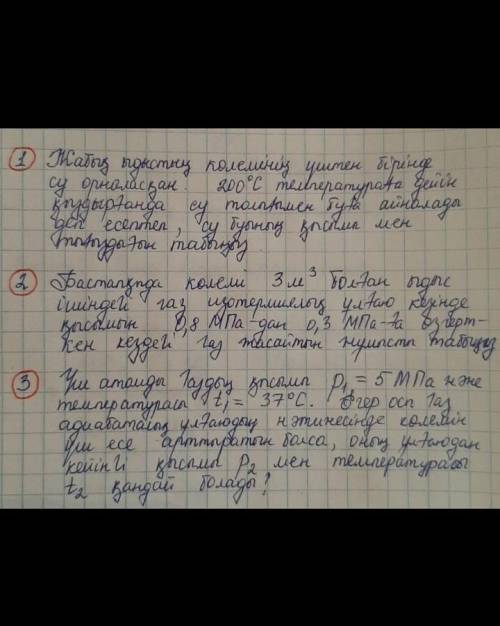 1 Жабық ыдыстың көлемінің үштен бірінде
су орналасқан. 200°С температураға дейін
қыздырғанда су толығымен буға айналады
деп есептеп, су буының қысымы мен
тығыздығын табыңыз
2 Бастапқыда көлемі 3 м³ болған ыдыс
ішіндегі газ изотермиялық ұлғаю кезінде
қысымын 0,8 МПа-дан 0,3 МПа-ға өзгерт-
кен кездегі газ жасайтын жұмысты табыңыз
3 Үш атомды газдың қысымы p₁ = 5 МПа және
температурасы t₁ = 37°С. Егер осы газ
адиабаталық ұлғаюдың нәтижесінде көлемін
үш есе арттыратын болса, оның ұлғаюдан
кейінгі қысымы p₂ мен температурасы
t₂ қандай болады?